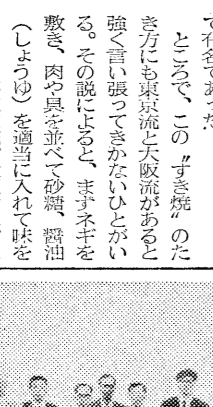 で有名であった
ところで、この〝すき焼〟のた
き方にも東京流と大阪流があると
強く言い張ってきかないひとがい
る。その説によると、まずネギを
敷き、肉や具を並べて砂糖、醤油
（しょうゆ）を適当に入れて味を